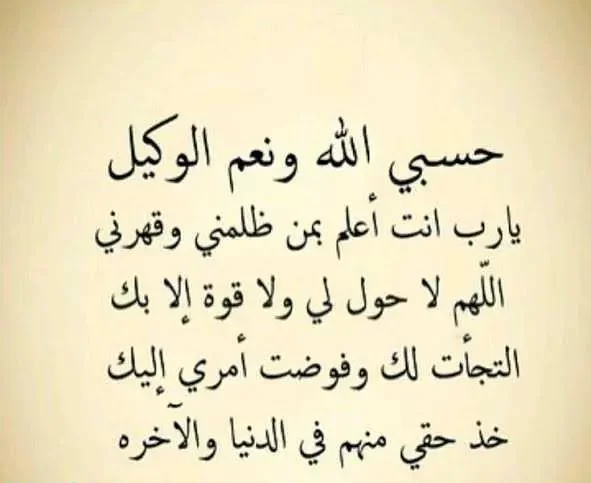 حسبي الله ونعم الوكيل
يارب انت أعلم بمن ظلمني وقهرني
اللّهم لا حول لي ولا قوة إلا بك
التجأت لك وفوضت أمري إليك
خذ حقي منهم في الدنيا والآخره